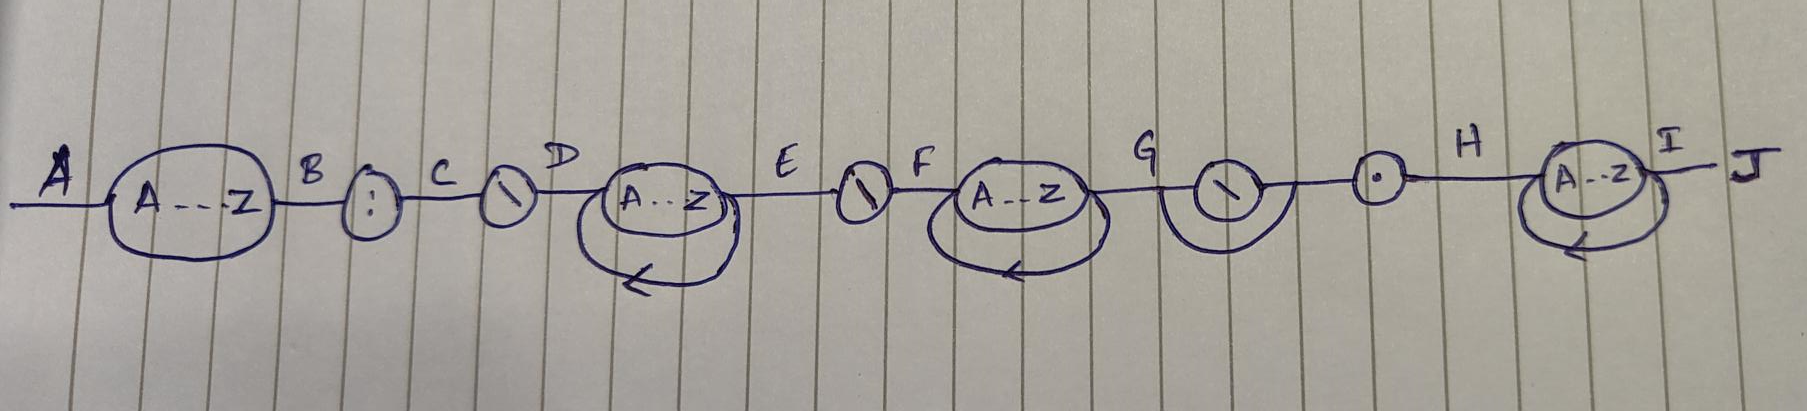 A A---Z B : C \ D A..Z E \ F A..Z G \ . H A..Z I J